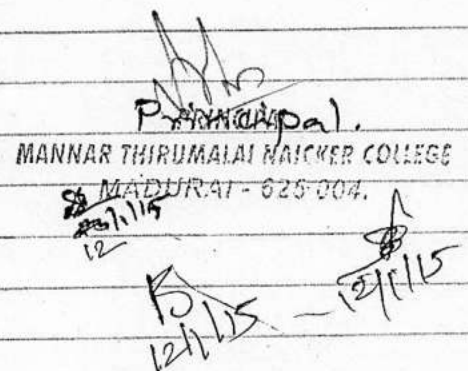 Principal.
MANNAR THIRUMALAI NAICKER COLLEGE
MADURAI - 625 004.
12/1/15
12/1/15
12/1/15